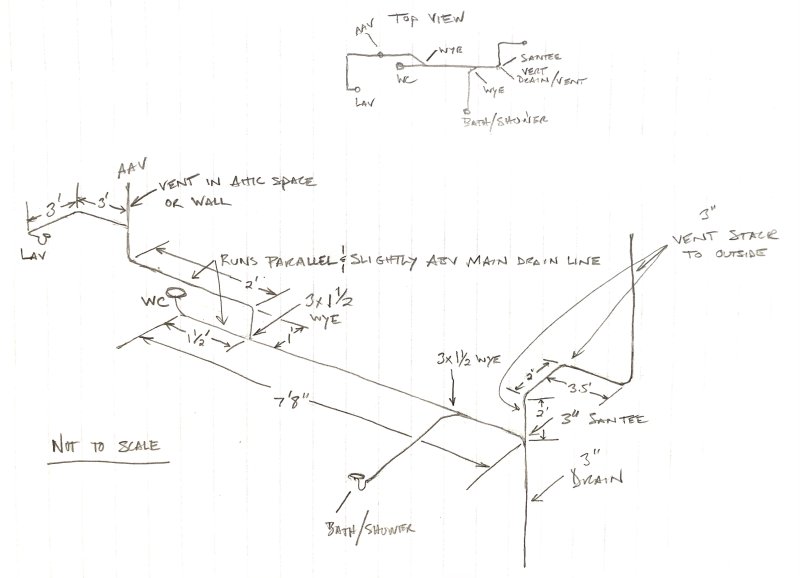 TOP VIEW
AAV
WYE
WC
LAV
SANTEE
VERT
DRAIN/VENT
WYE
BATH/SHOWER
AAV
VENT IN ATTIC SPACE
OR WALL
3'
3'
LAV
RUNS PARALLEL & SLIGHTLY ABV MAIN DRAIN LINE
2'
3"
VENT STACK
TO OUTSIDE
WC
3x1 1/2
WYE
1 1/2'
1'
7'8"
3x1/2 WYE
2'
3.5'
2'
3" SANTEE
3"
DRAIN
NOT TO SCALE
BATH/SHOWER